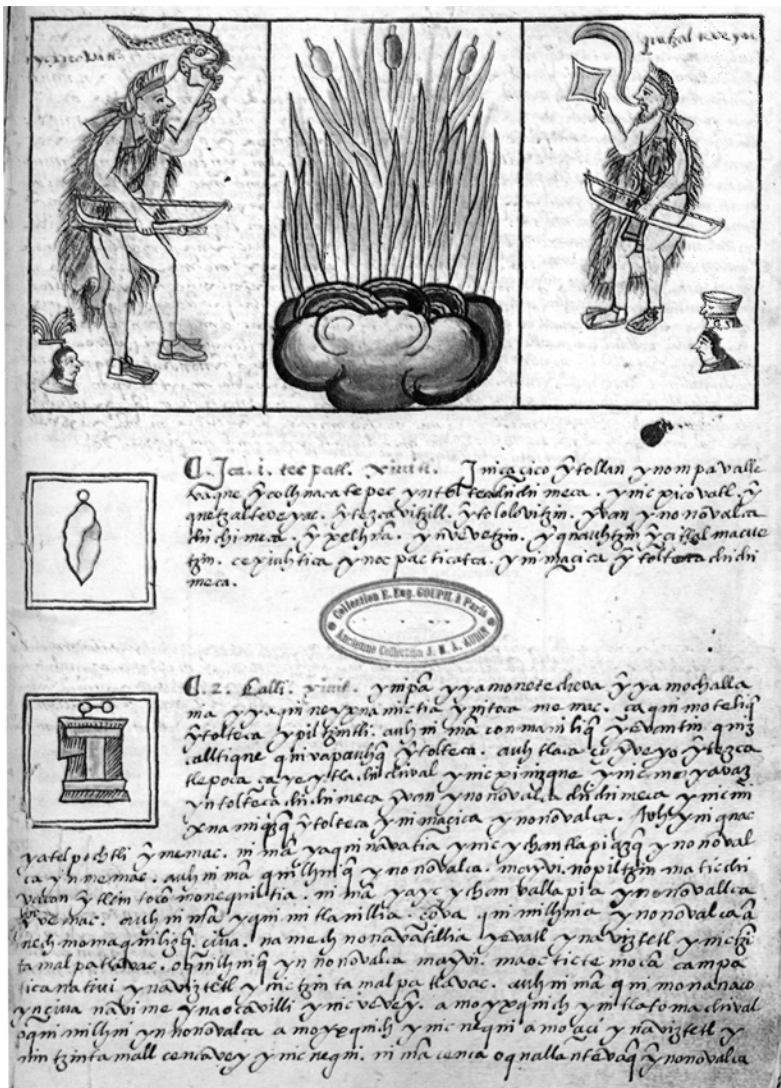 quetzalteveyac
C. Ica. i. tecpatl. xiuitl. Inic açico ỹ tollan ynompa valle
vaque ỹ colhuacatepec yn tolteca chichimeca. ynic picovall. ỹ
quetzalteveyac. ỹ tezcavitzill. ỹ tololovitzin. ỹvan ynonovalca
chichimeca. ỹ xelhuã. ynvevetzin. ỹ quauhtzin ỹ citlalmacue
tzin. ce xiuhtica ynoc pacticatca. yn imaçica ỹ tolteca chichi
meca.
Collection E. Eug. GOUPIL à Paris
Ancienne Collection J. M. A. AUBIN
C. 2. Calli. xiuit. ympã yyamonetecheva ỹ yamochalla
ma yyaquineyxnamictia ỹ pitoca memac. ca quimoteliq̃
ỹ tolteca ypiltzintli. auh ni mã conmaniliq̃ ỹevantin quiz
alltique quivapauhq̃ ỹ tolteca. auh tlaca ço ỹveyo ỹ tezca
tlepoca ca yeytla chichival ynic piniizque ynic moyavaz
yn tolteca chichimeca ỹvan ynonovalca chichimeca ynic mi
xnamiq̃zq̃ ỹ tolteca ynimaçica ynonovalca. Auh yniquac
yatelpochtli ỹ memac. ni mã yaquinavatia ynic ychantlapiazq̃ ynonoval
ca yn memac. auh ni mã quilhuiq̃ ynonovalca. mayvi. nopiltzin matichi
vacan ytlein tocõmonequiltia. ni mã yayc ychan vallapia ynonovallca
ỹ vemac. auh ni mã yquimitlanillia. çova quimilhuia ynonovalca ã
nechmomaquilizq̃. çiua. namechnonavatillia yevatl ynaviztetl ynictzi
tamalpatlavac. oquilhuiq̃ yn nonovalca mayvi. maoc tictemocã campa
ticanativi ynaviztetl ynictzintamalpatlavac. auh ni mã quimonanato
ynçiva navime ynaocavilli ynic vevey. amo yxquich ynitlatoma chival
oquimilhui yn nonovalca amo yxquich ynic nequi amo açi ynaviztetl y
nin tzintamall cencavey ynic nequi. ni mã cenca oquallãtevaq̃ ỹ nonovalca